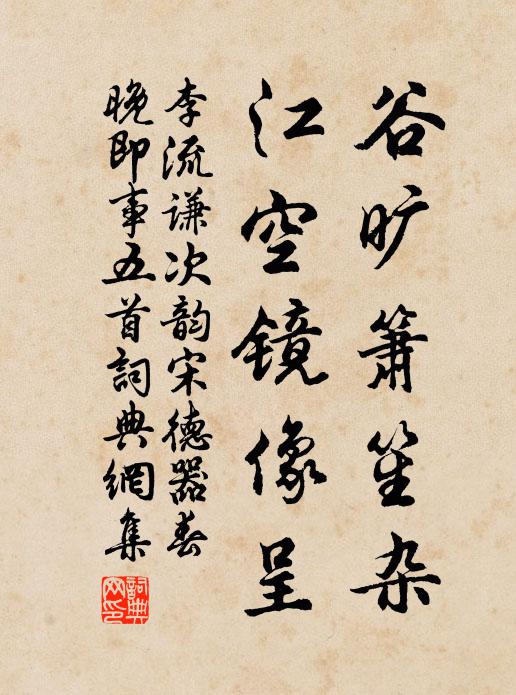 谷旷箫笙杂
江空镜像呈
李流谦次韵宋德器春
晚即事五首詞典網集
詞典網印